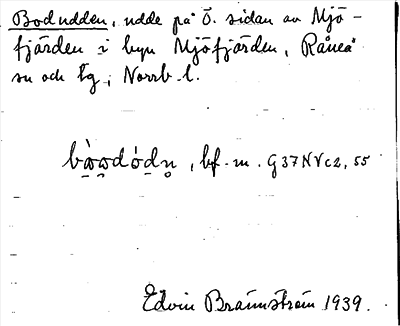 Bodudden, udde på Ö. sidan av Mjö-
fjärden i byn Mjöfjärden, Råneå
sn och tg, Norrb. l.
bf. m. G37NVc2, 55
Edvin Brännström 1939.